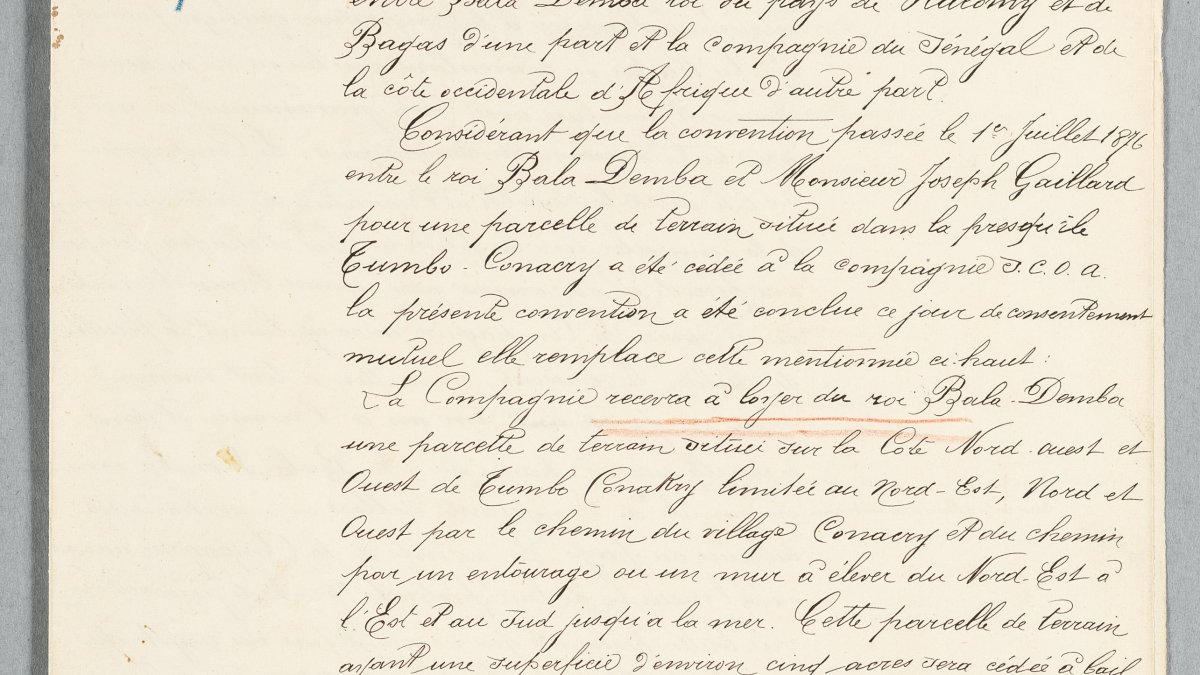 entre Bala Demba roi du pays de et de
Bagas d'une part et la compagnie du Sénégal et de
la côte occidentale d'Afrique d'autre part.
Considérant que la convention passée le 1er Juillet 1876
entre le roi Bala Demba et Monsieur Joseph Gaillard
pour une parcelle de terrain située dans la presqu'île
Tumbo-Conacry a été cédée à la compagnie S.C.O.A.
la présente convention a été conclue ce jour de consentement
mutuel elle remplace cette mentionnée ci-haut :
La Compagnie recevra à loyer du roi Bala-Demba
une parcelle de terrain située sur la Côte Nord-ouest et
Ouest de Tumbo Conakry limitée au Nord-Est, Nord et
Ouest par le chemin du village Conacry et du chemin
par un entourage ou un mur à élever du Nord-Est à
l'Est et au Sud jusqu'à la mer. Cette parcelle de terrain
ayant une superficie d'environ cinq acres sera cédée à bail